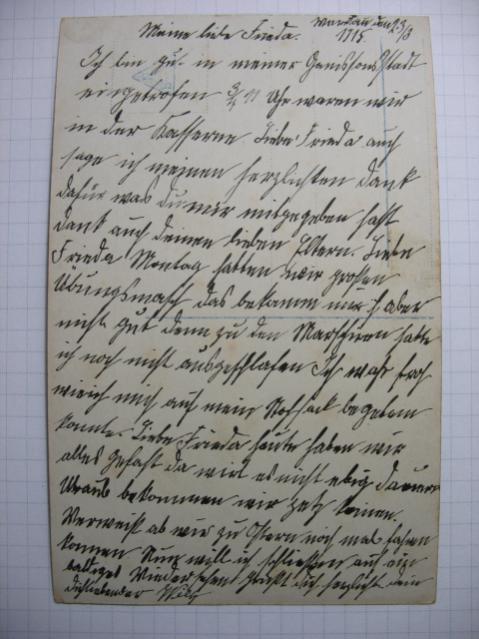 Meine liebe Frieda. den 23/3
1915
Ich bin gut in meiner Garnisonsstadt
eingetrofen 3/4 11 Uhr waren wir
in der Kasserne Liebe Frieda auch
sage ich meinen herzlichsten Dank
dafür was du mir mitgegeben hast
dank auch deinen lieben Eltern. Liebe
Frieda Montag hatten wir großen
Übungsmasch das bekamm mir aber
nicht gut denn zu den Marschiren hatte
ich noch nicht ausgeschlafen Ich wahr froh
wie ich mich auf mein Strohsack begeben
konnte. Liebe Frieda heute haben wir
alles gefast da wird es nicht ebig dauern
Uraub bekommen wir jetz keinen.
Verweist ob wir zu Ostern noch mal fahren
können Nun will ich schliessen auf ein
baldiges Wiedersehen grüßt dich herzlicht dein
dichliebender Willy